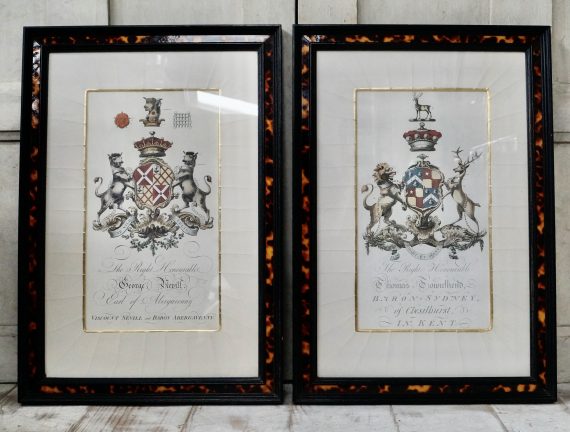 The Right Honourable
George Nevill,
Earl of Abergavenny
VISCOUNT NEVILL and BARON ABERGAVENNY
The Right Honourable
Thomas Townshend,
BARON SYDNEY,
of Cheselhurst,
IN KENT